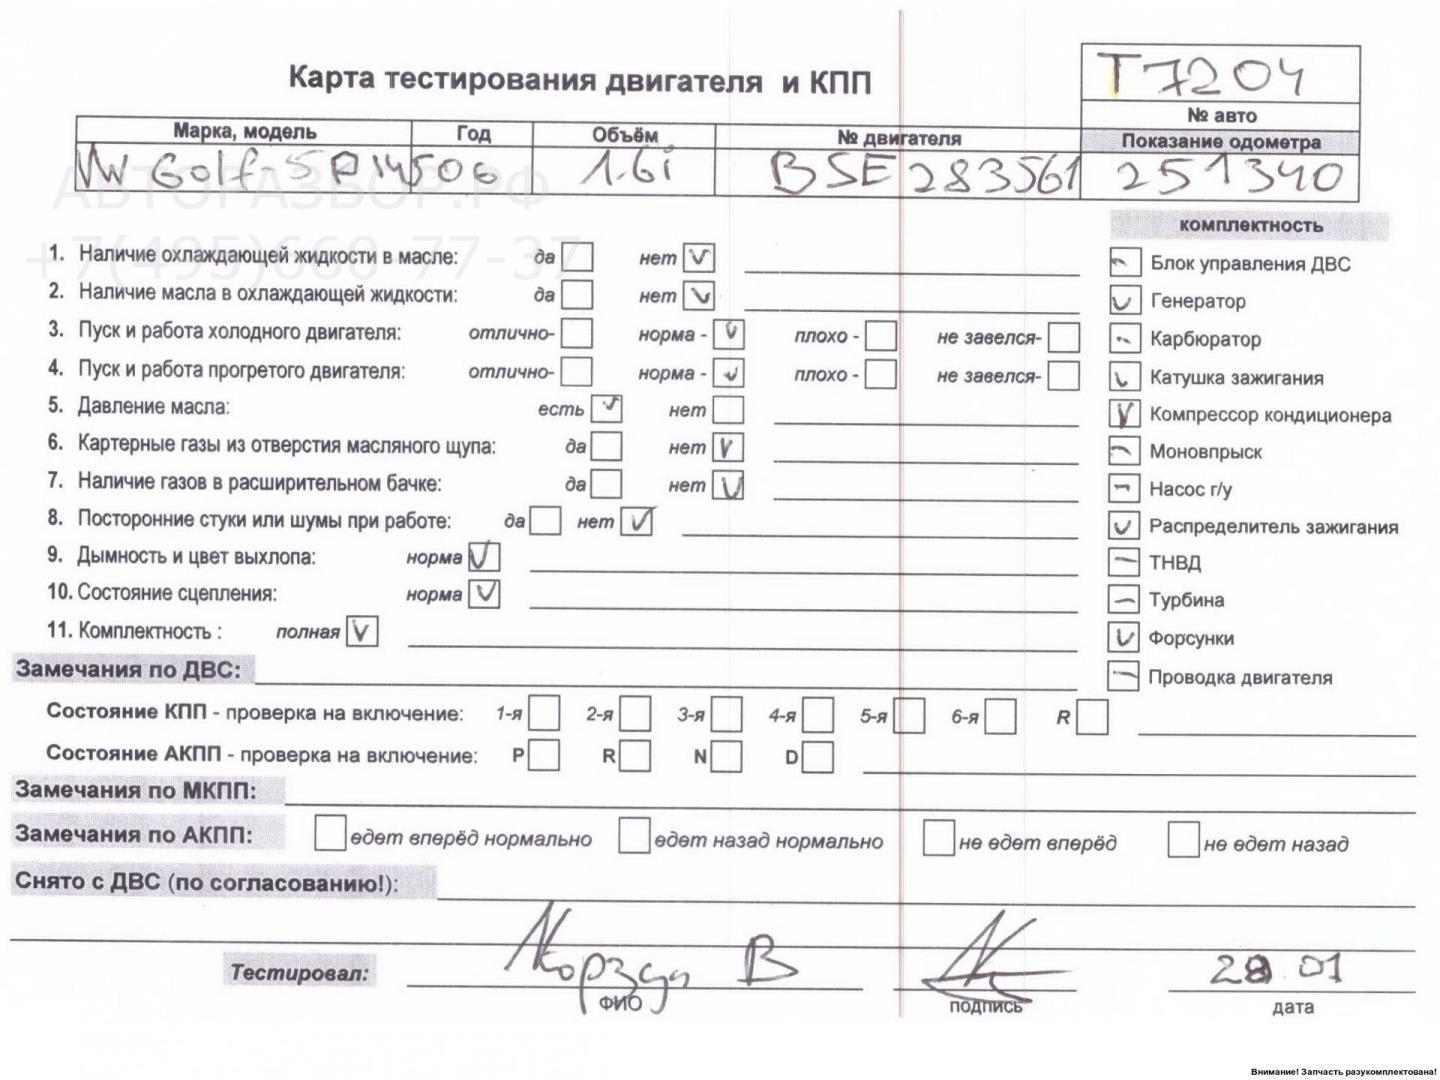 Карта тестирования двигателя и КПП
T7204
№ авто
Марка, модель Год Объём № двигателя Показание одометра
VW Golf-5 P14506 1.6i BSE 283561 251340
АВТОРАЗБОР.РФ
+7(495)660-77-37
комплектность
1. Наличие охлаждающей жидкости в масле: да нет
Блок управления ДВС
2. Наличие масла в охлаждающей жидкости: да нет
Генератор
3. Пуск и работа холодного двигателя: отлично- норма - плохо - не завелся-
Карбюратор
4. Пуск и работа прогретого двигателя: отлично- норма - плохо - не завелся-
Катушка зажигания
5. Давление масла: есть нет
Компрессор кондиционера
6. Картерные газы из отверстия масляного щупа: да нет
Моновпрыск
7. Наличие газов в расширительном бачке: да нет
Насос г/у
8. Посторонние стуки или шумы при работе: да нет
Распределитель зажигания
9. Дымность и цвет выхлопа: норма
ТНВД
10. Состояние сцепления: норма
Турбина
11. Комплектность : полная
Форсунки
Замечания по ДВС:
Проводка двигателя
Состояние КПП - проверка на включение: 1-я 2-я 3-я 4-я 5-я 6-я R
Состояние АКПП - проверка на включение: P R N D
Замечания по МКПП:
Замечания по АКПП: едет вперёд нормально едет назад нормально не едет вперёд не едет назад
Снято с ДВС (по согласованию!):
Тестировал: В 28 01
ФИО подпись дата
Внимание! Запчасть разукомплектована!